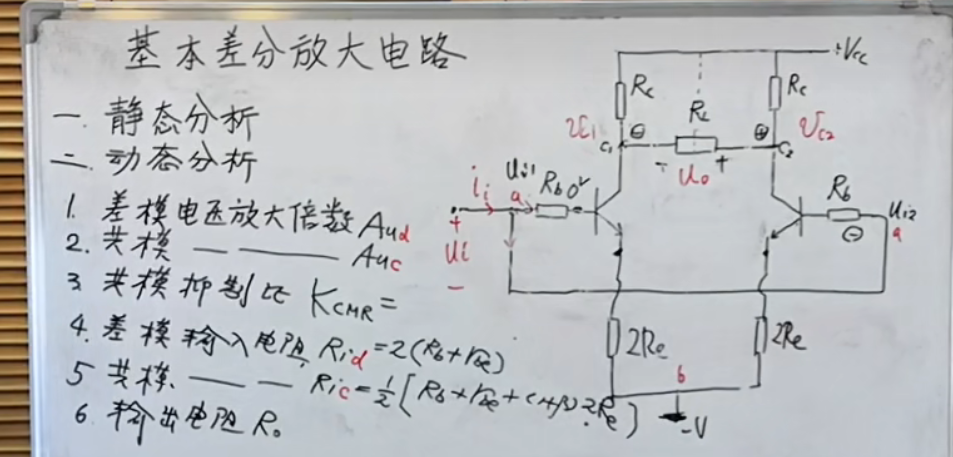 基本差分放大电路
一. 静态分析
二. 动态分析
1. 差模电压放大倍数 Aud
2. 共模 —— ———— Auc
3. 共模抑制比 KCMR =
4. 差模输入电阻 Rid = 2(Rb+rbe)
5 共模 —— — Ric = ½[Rb+rbe+(1+β)2Re]
6. 输出电阻 Ro
+Vcc
Rc
Rc
RL
c1
⊖
⊕
c2
Vc2
- Uo +
ii
Ui1
a
Rb
Rb
Ui2
a
⊖
+
Ui
-
2Re
2Re
b
-V